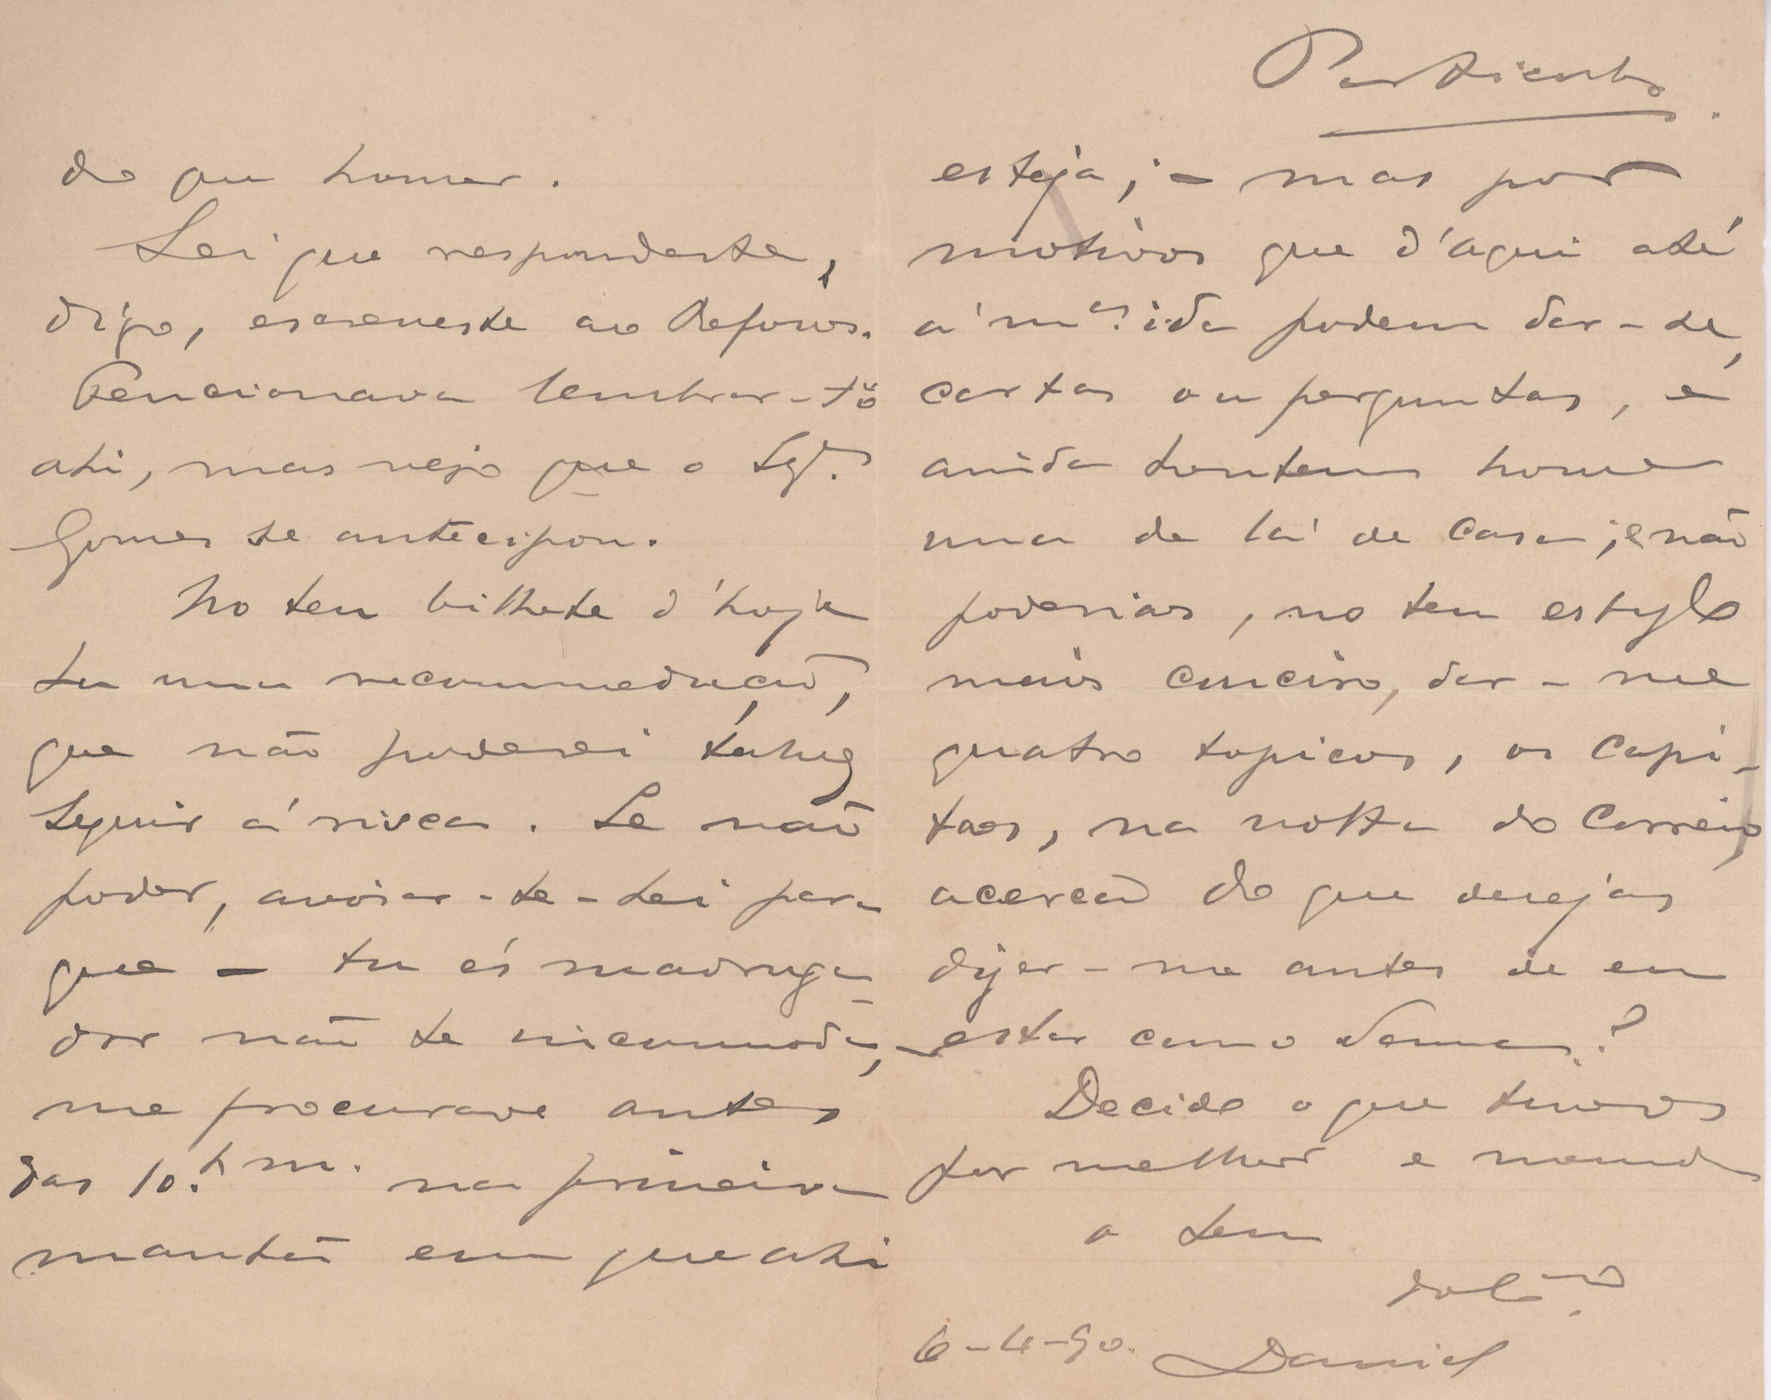 do que houver.
Sei que respondeste,
digo, escreveste ao
Tencionava lembrar-t'o
ahi, mas vejo que o Sgr.
Gomes se antecipou.
No teu bilhete d'hoje
tu uma recommedação,
que não poderei talvez
seguir á risca. Se não
poder, avisar-te-hei por-
que — tu és madruga-
dor não te incommoda,
me procurave antes
das 10.h m. na primeira
manhã em que ahi
Particular.
esteja; — mas por
motivos que d'aqui até
á m.a ida podem dar-se,
cartas ou perguntas, e
ainda hontem houve
uma de lá de casa; e não
poderias, no teu estylo
mais conciso, dar-me
quatro topicos, os capi-
taes, na volta do Correio,
acerca do que desejas
dizer-me antes de eu
estar com o Sennes?
Decide o que tiveres
por melhor e manda
o teu
Daniel
6-4-90.